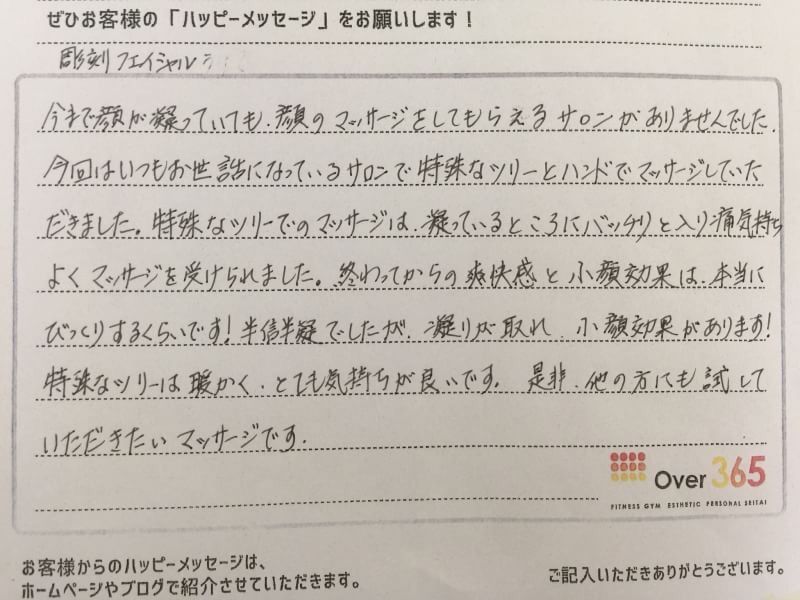 ぜひお客様の「ハッピーメッセージ」をお願いします!
彫刻フェイシャル
今まで顔が凝っていても、顔のマッサージをしてもらえるサロンがありませんでした。
今回はいつもお世話になっているサロンで特殊なツリーとハンドでマッサージしていた
だきました。特殊なツリーでのマッサージは、凝っているところにバッチリと入り痛気持ち
よくマッサージを受けられました。終わってからの爽快感と小顔効果は、本当に
びっくりするくらいです!半信半疑でしたが、凝りが取れ 小顔効果があります!
特殊なツリーは暖かく、とても気持ちが良いです。 是非、他の方にも試して
いただきたいマッサージです。
Over 365
FITNESS GYM ESTHETIC PERSONAL SEITAI
お客様からのハッピーメッセージは、
ホームページやブログで紹介させていただきます。
ご記入いただきありがとうございます。